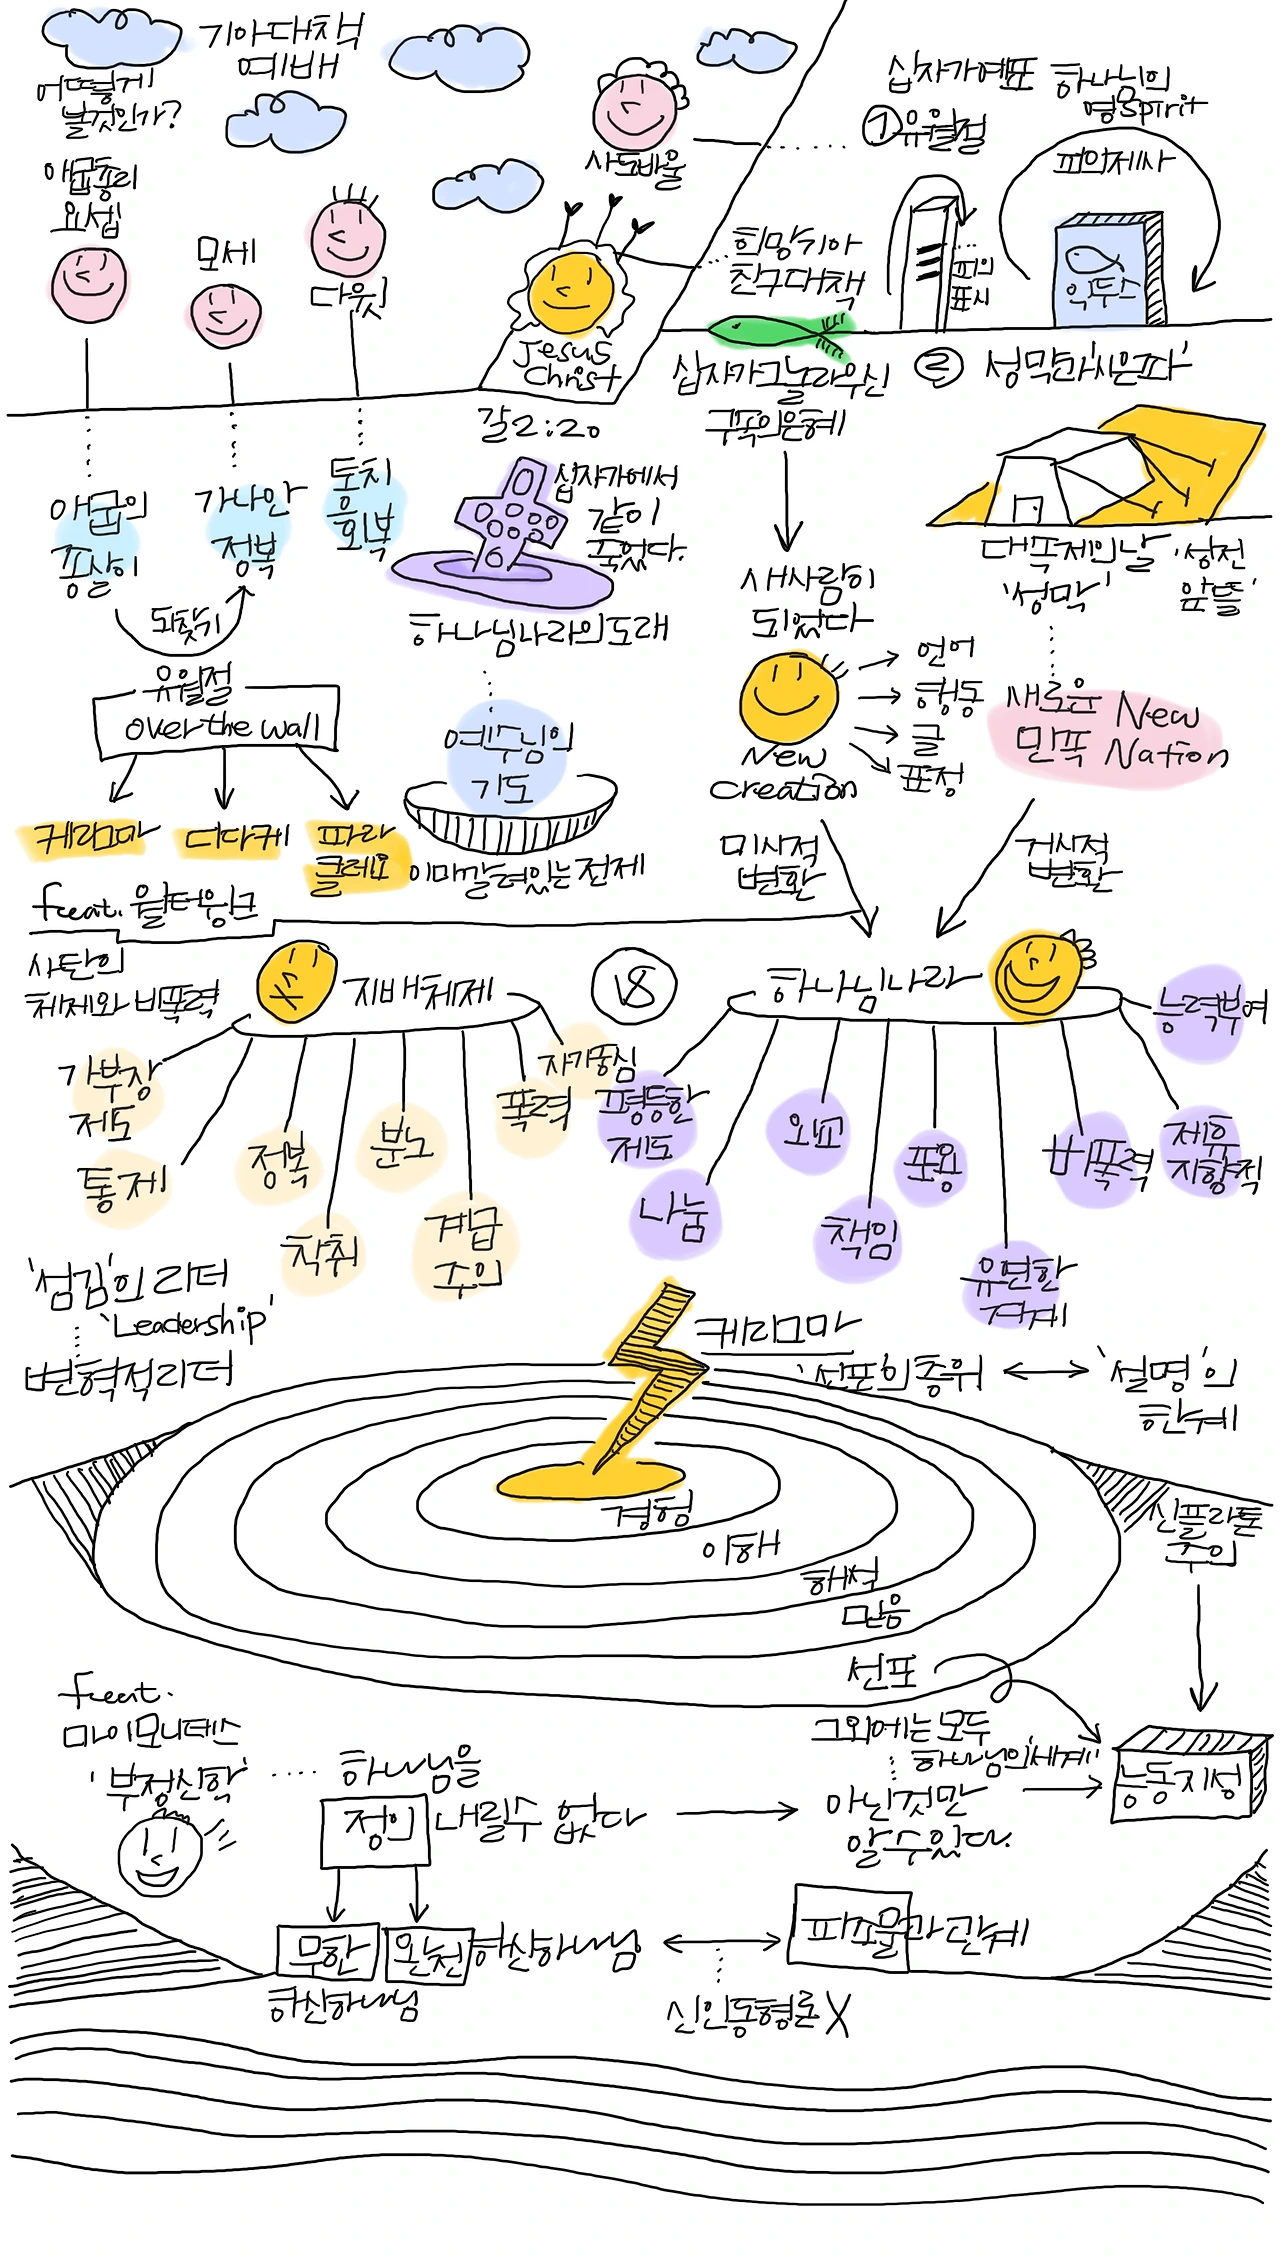 기아대책
예배
어떻게
날것인가?
애굽총리
요셉
모세
다윗
사도바울
Jesus
Christ
십자가예표
①유월절
하나님의
영spirit
피의제사
피의
표시
익투스
희망기아
친구대책
십자가그날라우신
구폭의은혜
② 성막과'시은파'
애굽의
종살이
가나안
정복
통치
회복
되찾기
갈2:20
십자가에서
같이
죽었다.
하나님나라의도래
새사람이
되었다
New
creation
언어
행동
글
표정
대폭제의날
'성막'
'성전
앞뜰'
새로운 New
민족 Nation
유월절
over the wall
케리그마
디다케
파라
클레오
예수님의
기도
이미깔려있는전제
미시적
변환
거시적
변환
feat. 월터윙크
사탄의
체제와 비폭력
지배체제
VS
하나님나라
가부장
제도
통제
정복
착취
분노
계급
주의
폭력
자기중심
평등한
제도
나눔
외교
책임
포용
유연한
경계
비폭력
제휴
지향적
능력부여
'섬김'의 리더
'Leadership'
변혁적리더
케리그마
'선포'의층위
'설명'의
한계
경험
이해
해석
믿음
선포
신플라톤
주의
feat.
마이모니데스
'부정신학'
하나님을
정의 내릴수 없다
그외에는모두
하나님의'세계'
아닌것만
알수있다.
능동지성
무한
하신하나님
온전하신하나님
피조물과관계
신인동형론X